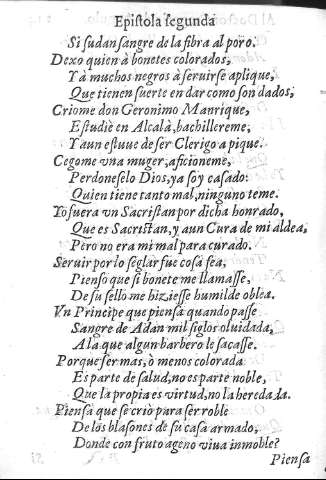 Epistola segunda
Si sudan sangre de la fibra al poro.
Dexo quien à bonetes colorados,
Y à muchos negros à seruirse aplique,
Que tienen suerte en dar como son dados,
Criome don Geronimo Manrique,
Estudiè en Alcalà, bachillereme,
Y aun estuue de ser Clerigo a pique.
Cegome vna muger, aficioneme,
Perdoneselo Dios, ya soy casado:
Quien tiene tanto mal, ninguno teme.
Yo fuera vn Sacristan por dicha honrado,
Que es Sacristan, y aun Cura de mi aldea,
Pero no era mi mal para curado.
Seruir por lo seglar fue cosa fea,
Pienso que si bonete me llamasse,
De su sello me hiziesse humilde oblea.
Vn Principe que piensa quando passe
Sangre de Adan mil siglos oluidada,
A la que algun barbero le sacasse.
Porque ser mas, ò menos colorada
Es parte de salud, no es parte noble,
Que la propia es virtud, no la heredada.
Piensa que se criò para ser roble
De los blasones de su casa armado,
Donde con fruto ageno viua inmoble?
Piensa